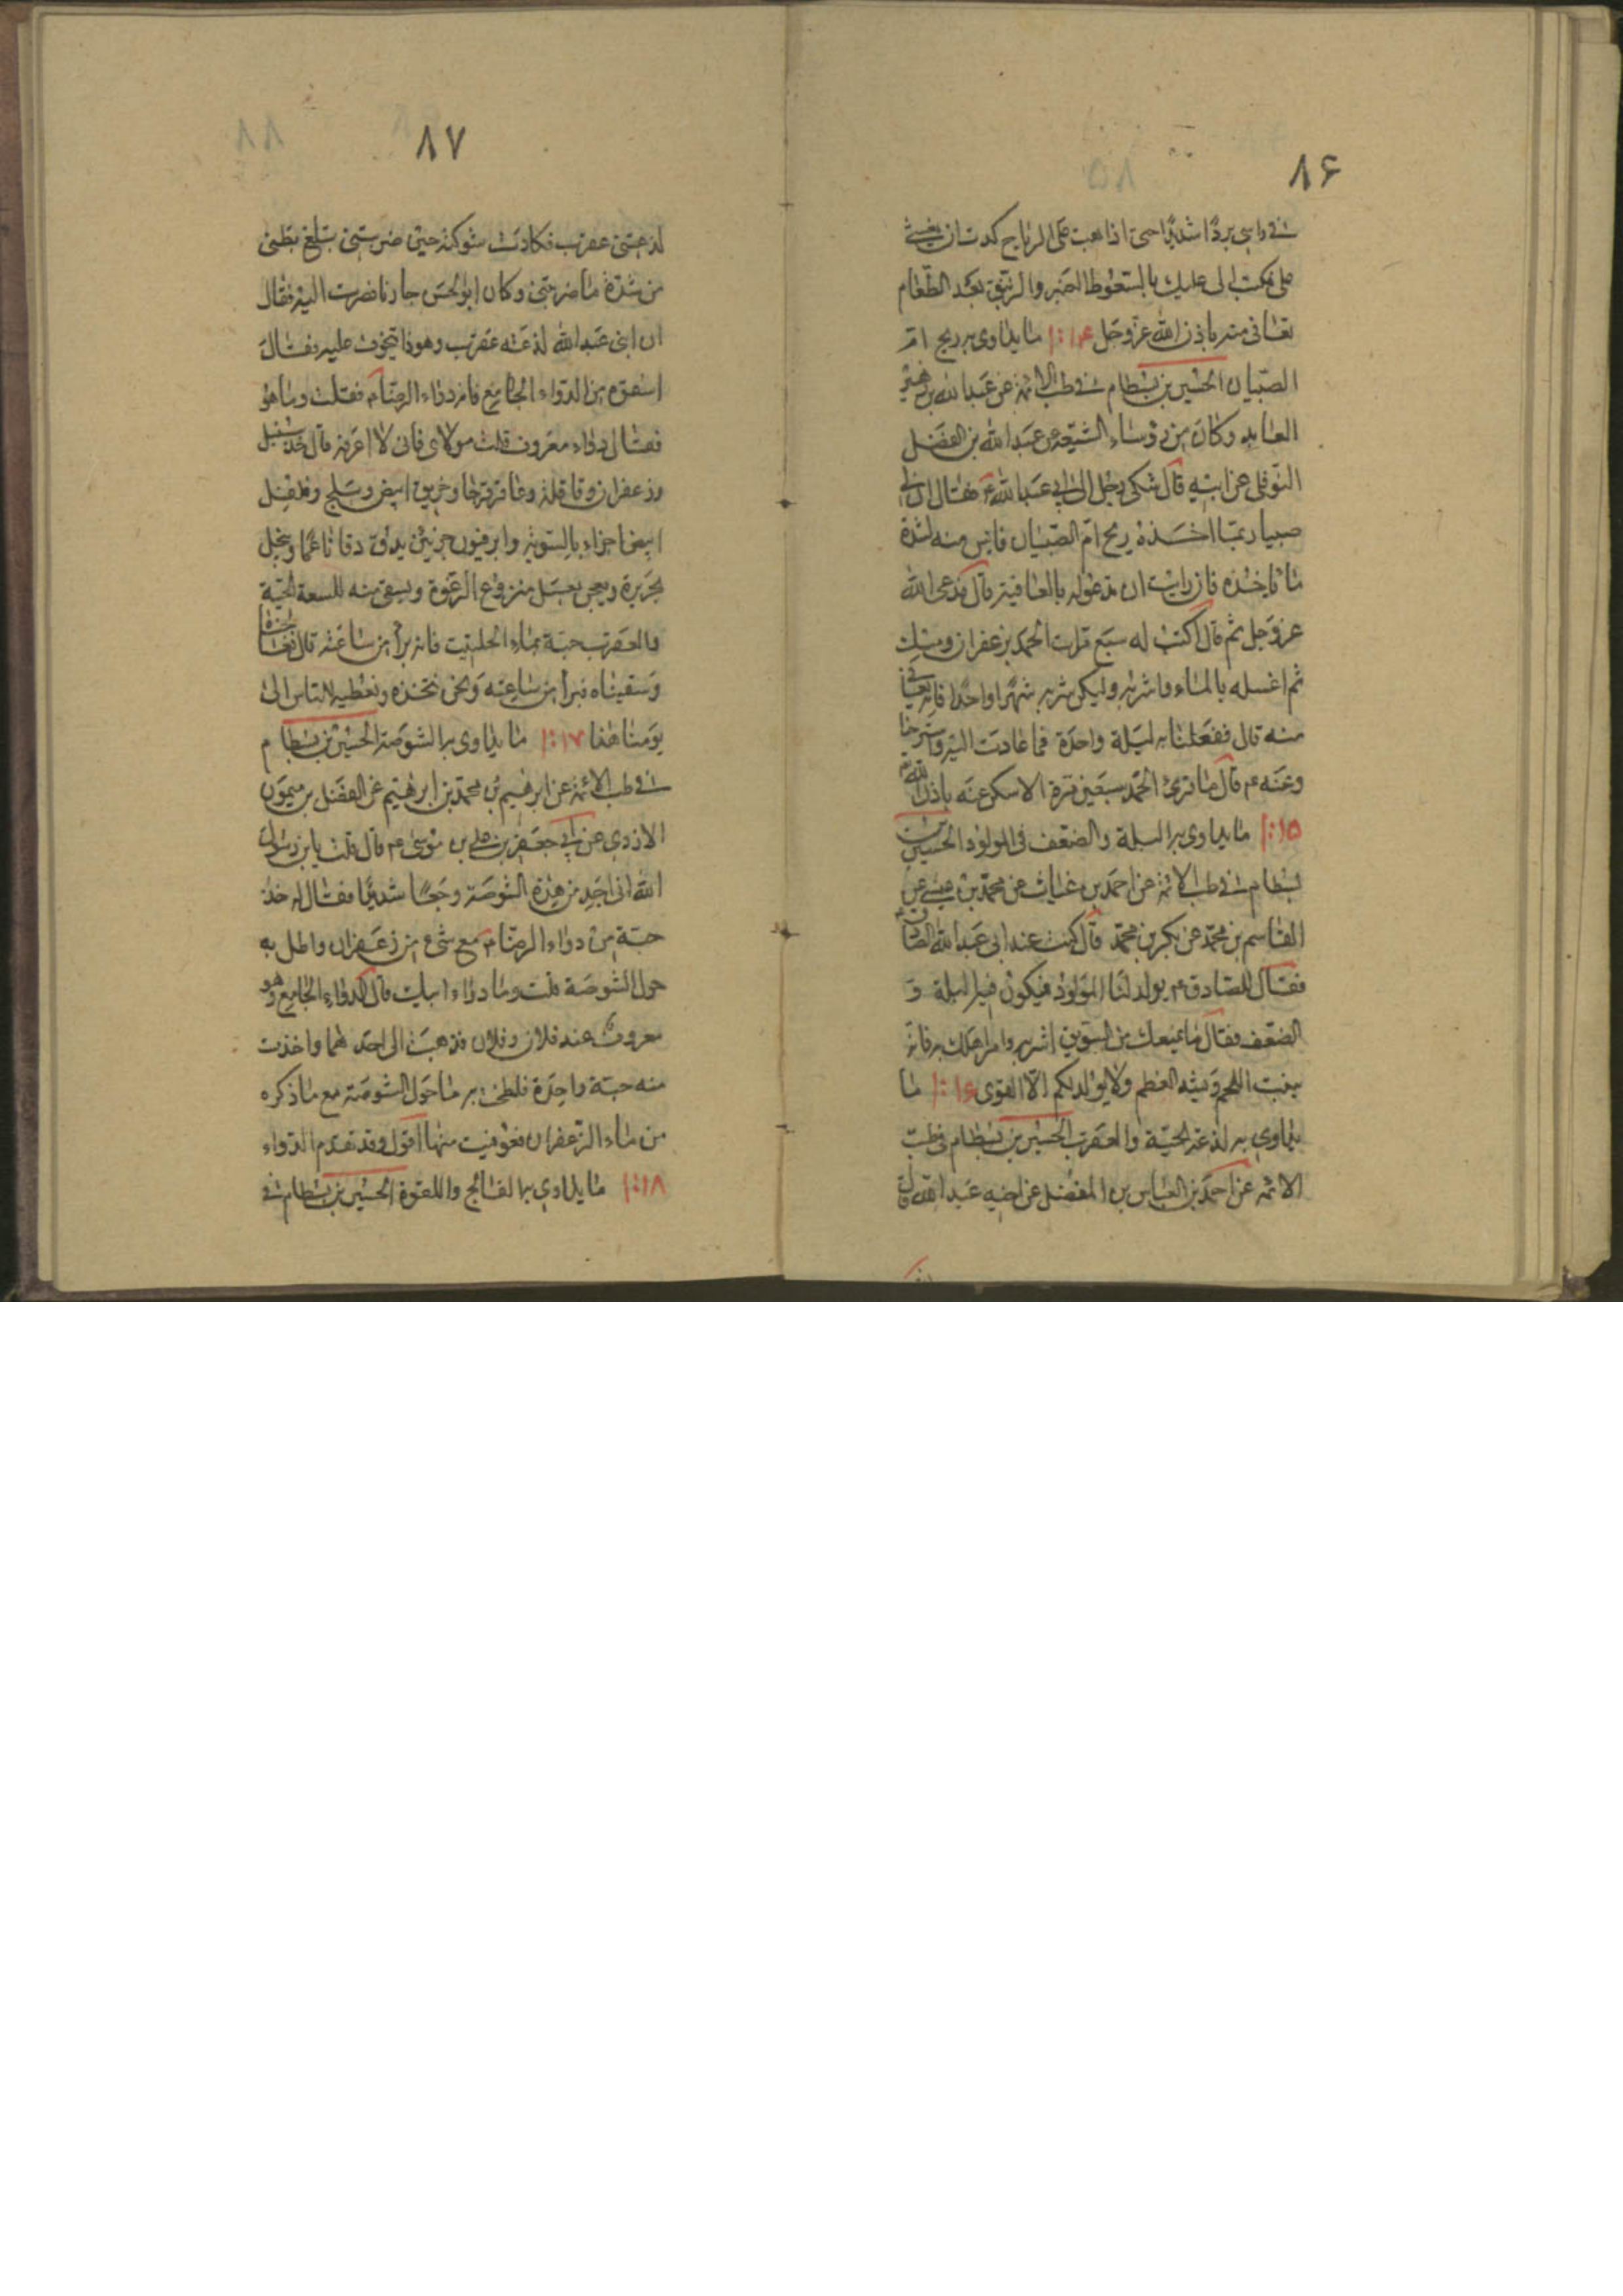 ٨۶
فى راسى بردًا شديدًا حتى اذا هبت على الرياح كدت ان يغشى
على فكتب الى عليك بالسعوط العنبر والزنبق بعد الطعام
تعافى منه باذن الله عز وجل ١٠:١۴ ما يداوى به ريح ام
الصبيان الحسين بن بسطام فى طب الائمة عن عبد الله بن زهير
العابد وكان من رؤساء الشيعة عن عبد الله بن الفضل
النوفلى عن ابيه قال شكى رجل الى ابى عبد الله ع فقال ان لى
صبيا ربما اخذه ريح ام الصبيان فايس منه لشدة
ما ياخذه فان رايت ان تدعو له بالعافية قال فدعى الله
عز وجل ثم قال اكتب له سبع مرات الحمد بزعفران ومسك
ثم اغسله بالماء واشربه وليكن شربه شهرا واحدا فانه يعافى
منه قال ففعلنا به ليلة واحدة فما عادت اليه واسترحنا
وعنه ع قال ما قرئ الحمد سبعين مرة الا سكن عنه باذن الله
١٠:١۵ ما يداوى به البلة والضعف فى المولود الحسين بن
بسطام فى طب الائمة عن احمد بن غياث عن محمد بن عيسى عن
القاسم بن محمد عن بكر بن محمد قال كنت عند ابى عبد الله الصادق ع
فقال للصادق ع يولد لنا المولود فيكون فيه البلة و
الضعف فقال ما يمنعك من السويق اشربه وامر اهلك به فانه
ينبت اللحم ويشد العظم ولا يولد لكم الا القوى ١٠:١۶ ما
يداوى به لذعة الحية والعقرب الحسين بن بسطام فى طب
الائمة عن احمد بن العباس بن المفضل عن اخيه عبد الله قال
٨٧
لذعتنى عقرب فكادت شوكته حين ضربتنى تبلغ بطنى
من شدة ما ضربتنى وكان ابو الحسن جارنا فصرت اليه فقال
ان ابنى عبد الله لذعته عقرب وهو ذا يتخوف عليه فقال
اسقوه من الدواء الجامع فانه دواء الرضا ع فقلت وما هو
فقال دواء معروف قلت مولاى فانى لا اعرفه قال خذ سنبل
وزعفران وقاقلة وعاقرقرحا وخربق ابيض وبنج وفلفل
ابيض اجزاء بالسوية وابرفيون جزئين يدق دقا ناعما وينخل
بحريرة ويعجن بعسل منزوع الرغوة ويسقى منه للسعة الحية
والعقرب حبة بماء الحلتيت فانه يبرأ من ساعته قال فعالجناه
وسقيناه فبرأ من ساعته ونحن نتخذه ونعطيه للناس الى
يومنا هذا ١٠:١٧ ما يداوى به الشوصة الحسين بن بسطام
فى طب الائمة عن ابرهيم بن محمد بن ابرهيم عن الفضل بن ميمون
الازدى عن ابى جعفر بن على بن موسى ع قال قلت يا بن رسول
الله انى اجد من هذه الشوصة وجعًا شديدًا فقال له خذ
حبة من دواء الرضا ع مع شئ من زعفران واطل به
حول الشوصة قلت وما دواء ابيك قال الدواء الجامع وهو
معروف عند فلان وفلان فذهبت الى احدهما واخذت
منه حبة واحدة فلطخت به ما حول الشوصة مع ما ذكره
من ماء الزعفران فعوفيت منها اقول وقد تقدم الدواء
١٠:١٨ ما يداوى به الفالج واللقوة الحسين بن بسطام فى